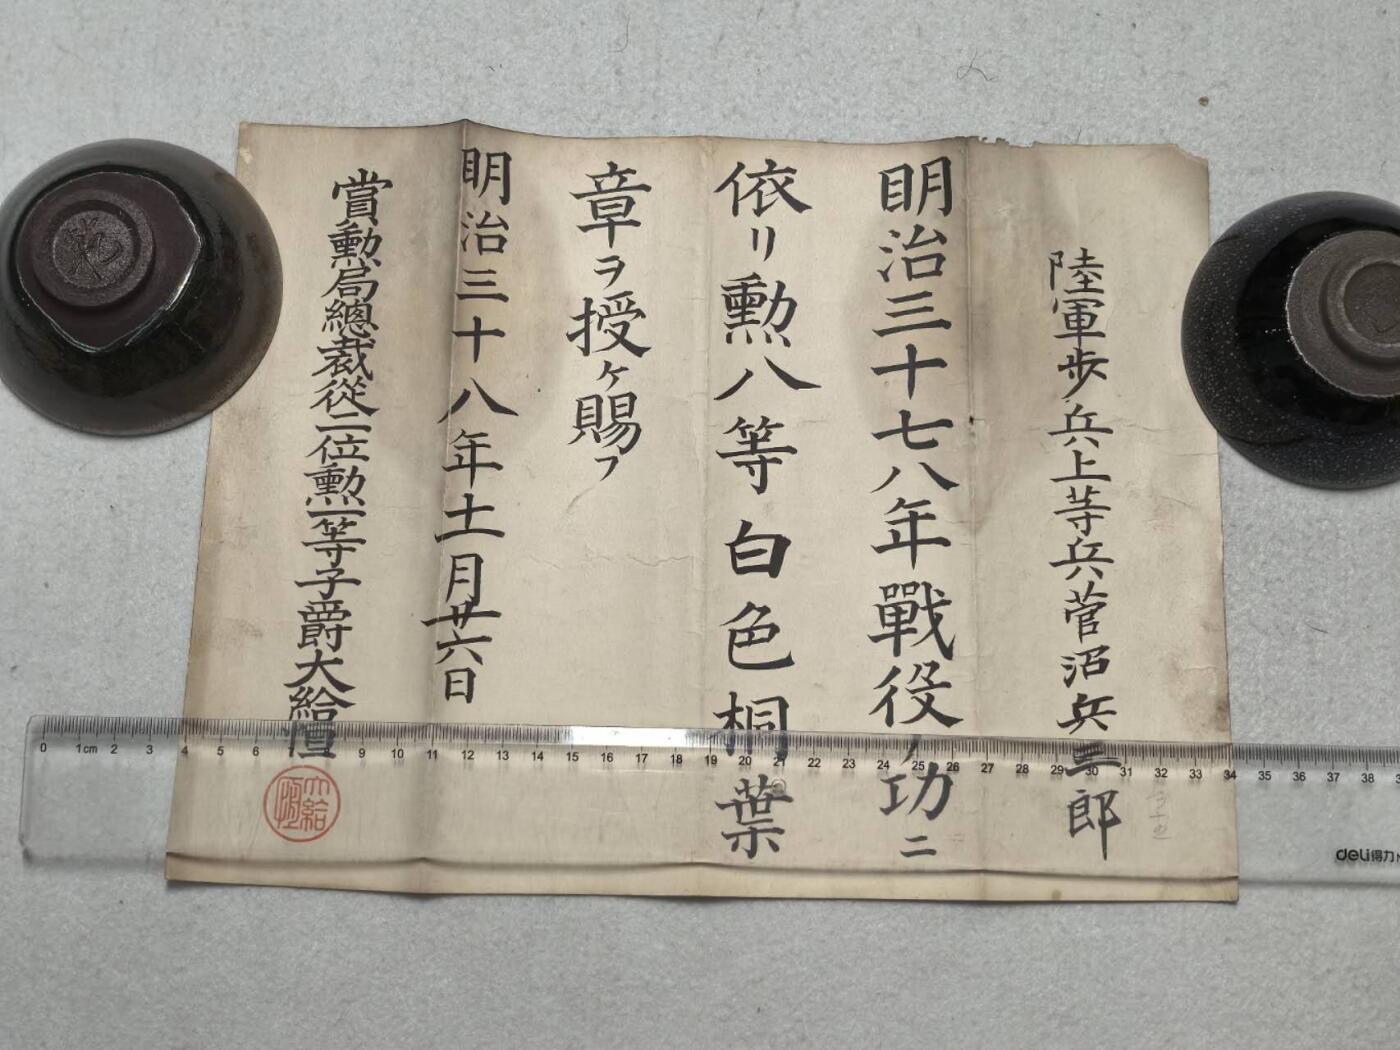 陸軍歩兵上等兵菅沼兵三郎
明治三十七八年戰役ノ功ニ
依リ勲八等白色桐葉
章ヲ授ケ賜フ
明治三十八年十一月廿六日
賞勲局總裁從二位勲一等子爵大給恒
大給恒
0 1cm 2 3 4 5 6 7 8 9 10 11 12 13 14 15 16 17 18 19 20 21 22 23 24 25 26 27 28 29 30 31 32 33 34 35 36 37 38
deli得力